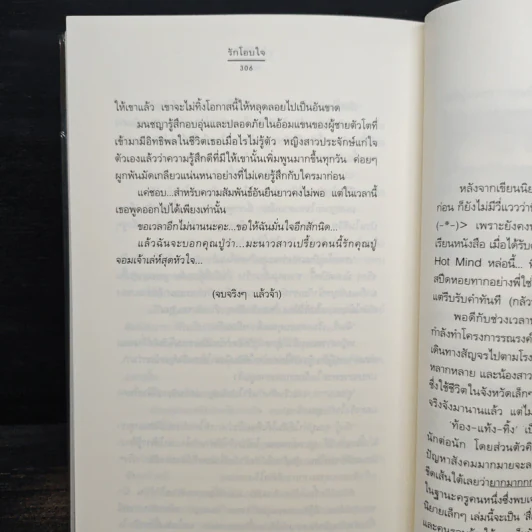 รักโอบใจ
306
ให้เขาแล้ว เขาจะไม่ทิ้งโอกาสนี้ให้หลุดลอยไปเป็นอันขาด
มนชญารู้สึกอบอุ่นและปลอดภัยในอ้อมแขนของผู้ชายตัวโตที่
เข้ามามีอิทธิพลในชีวิตเธอเมื่อไรไม่รู้ตัว หญิงสาวประจักษ์แก่ใจ
ตัวเองแล้วว่าความรู้สึกดีที่มีให้เขานั้นเพิ่มพูนมากขึ้นทุกวัน ค่อยๆ
ผูกพันมัดเกลียวแน่นหนาอย่างที่ไม่เคยรู้สึกกับใครมาก่อน
แค่ชอบ...สำหรับความสัมพันธ์อันยืนยาวคงไม่พอ แต่ในเวลานี้
เธอพูดออกไปได้เพียงเท่านั้น
ขอเวลาอีกไม่นานนะคะ...ขอให้ฉันมั่นใจอีกสักนิด...
แล้วฉันจะบอกคุณปู่ว่า...มะนาวสาวเปรี้ยวคนนี้รักคุณปู่
จอมเจ้าเล่ห์สุดหัวใจ...
(จบจริงๆ แล้วจ้า)
หลังจากเขียนนิย
ก่อน ก็ยังไม่มีวี่แววว่า
(-*-)> เพราะยังคงห
เรียนหนังสือ เมื่อได้รับ
Hot Mind หล่อนี้...
สปีดหอยทากอย่างพี่ใช
แต่รีบรับคำทันที (กลัว
พอดีกับช่วงเวลา
กำลังทำโครงการรณรงค์
เดินทางสัญจรไปตามโรง
หลากหลาย และน้องสาว
ซึ่งใช้ชีวิตในจังหวัดเล็กๆ
จริงจังมานานแล้ว แต่ไม
'ท้อง-แท้ง-ทิ้ง' เป็
นักต่อนัก โดยส่วนตัวคิ
ปัญหาสังคมมากมายจะล
ขีดเส้นใต้เลยว่ายากมากก
ในฐานะครูคนหนึ่งซึ่งพบเ
นิยายเล็กๆ เล่มนี้จะเป็น